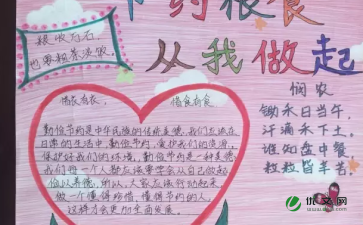 节约粮食
从我做起
粮收万石，
也要粗茶淡饭。
惜衣有衣，
惜食有食
勤俭节约是中华民族的传统美德，我们生活在
日常的生活中，勤俭节约，爱护我们的资源，
保护好我们的环境，勤俭节约是一种美德
我们每一个人都应该要学会从自己做起
俭以养德。所以，大家应该行动起来，
做一个懂得珍惜，懂得节约的人，
这样才会更加全面发展。
悯农
锄禾日当午，
汗滴禾下土，
谁知盘中餐
粒粒皆辛苦
优文网